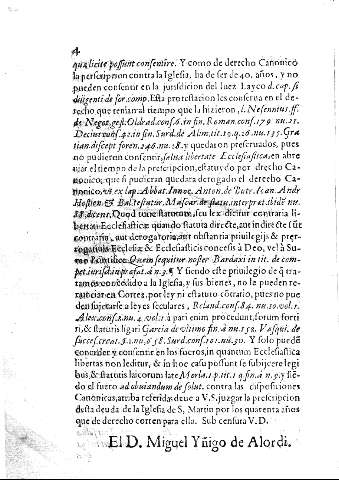 4
quæ licitè possunt consentire. Y como de derecho Canonico
la perscripcion contra la Iglesia, ha de ser de 40. años, y no
pueden consentir en la jurisdicion del Iuez Layco d. cap. si
diligenti de for. comp. Esta protestacion les conserva en el de-
recho que tenian al tiempo que la hizieron, l. Nesennius. ff.
de Negot. gest. Oldrad. conf. 6. in fin. Roman. conf. 179. nu. 15.
Decius conf. 42. in fin. Surd. de Alim. tit. 15. q. 26. nu. 135. Gra
tian. discept. foren. 246. nu. 38. y quedaron preservados, pues
no pudieron consentir, salva libertate Ecclesiastica en abre
viar el tiempo de la prescripcion, estatuydo por drecho Ca-
nonico; que si pudieran quedara derogado el derecho Ca
nonico, vt ex cap. Abbat. Innoc. Anton. de Butr. Ioan. Andr
Hostien. & Bal. testatur. Mascar. de statu. interpret. thibi. nu.
28. dicent, Quod tunc statutum, seu lex dicitur contraria li-
bertati Ecclesiasticæ quando statuta directè, aut indirectè sũt
contraria, aut derogatoria, aut obstantia priuilegijs & prer-
rogatiuis Ecclesiæ, & Ecclesiasticis concessis à Deo, vel à Sum
mo Pontifice. Quem sequitur noster Bardaxi in tit. de com-
pet. jurisd. in præfat. à n. 3. ¶ Y siendo este privilegio de q̃ tra-
tamos concedido a la Iglesia, y sus bienes, no le pueden re-
nunciar en Cortes, por ley ni estatuto cõtrario, pues no pue
den sujetarse a leyes seculares, Roland. conf. 84. nu. 10. vol. 1.
Alex. conf. 2. nu. 4. vol. 1. à pari enim procedunt, forum forti
ri, & statutis ligari Garcia de vltimo fin. à nu. 152. Vasqui. de
succes. creat. §. 1. nu. 658. Surd. conf. 101. nu. 50. Y solo puedẽ
conceder y consentir en los fueros, in quantum Ecclesiastica
libertas non leditur, & in hoc casu possunt se subijcere legi
bus, & statutis laicorum late Morla 1. p. tit. 1. q. fin. à n. 3. y siẽ-
do el fuero ad obuiandum de solut. contra las disposiciones
Canonicas, arriba referidas deue a V. S. juzgar la prescripcion
desta deuda de la Iglesia de S. Martin por los quarenta años
que de derecho corren para ella. Sub censura V. D.
El D. Miguel Yñigo de Alordi.